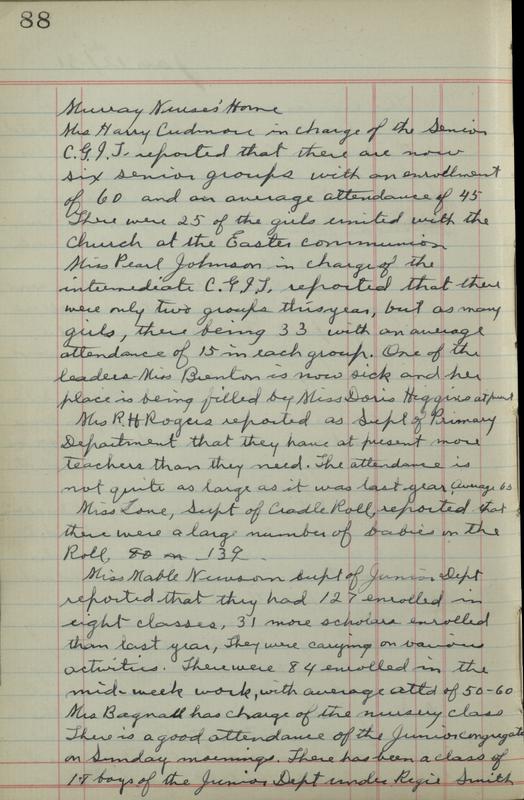 88
Murray Nurses' Home
Mrs Harry Cudmore in charge of the Senior
C.G.I.T. reported that there are now
six senior groups with an enrollment
of 60 and an average attendance of 45
There were 25 of the girls united with the
church at the Easter communion
Miss Pearl Johnson in charge of the
intermediate C.G.I.T. reported that there
were only two groups this year, but as many
girls, there being 33 with an average
attendance of 15 in each group. One of the
leaders Miss Brenton is now sick and her
place is being filled by Miss Doris Higgins at
Mrs R.H Rogers reported as Supt of Primary
Department that they have at present more
teachers than they need. The attendance is
not quite as large as it was last year, average 65
Miss Lone, Supt of Cradle Roll, reported that
there were a large number of babies on the
Roll, 139
Miss Mable Newsom Supt of Junior Dept
reported that they had 127 enrolled in
eight classes, 31 more scholars enrolled
than last year, They were carying on various
activities. There were 84 enrolled in the
mid-week work, with average attd of 50-60
Mrs Bagnall has charge of the nursery class
There is a good attendance of the Junior congregation
on Sunday mornings. There has been a class of
boys of the Junior Dept under Regie Smith